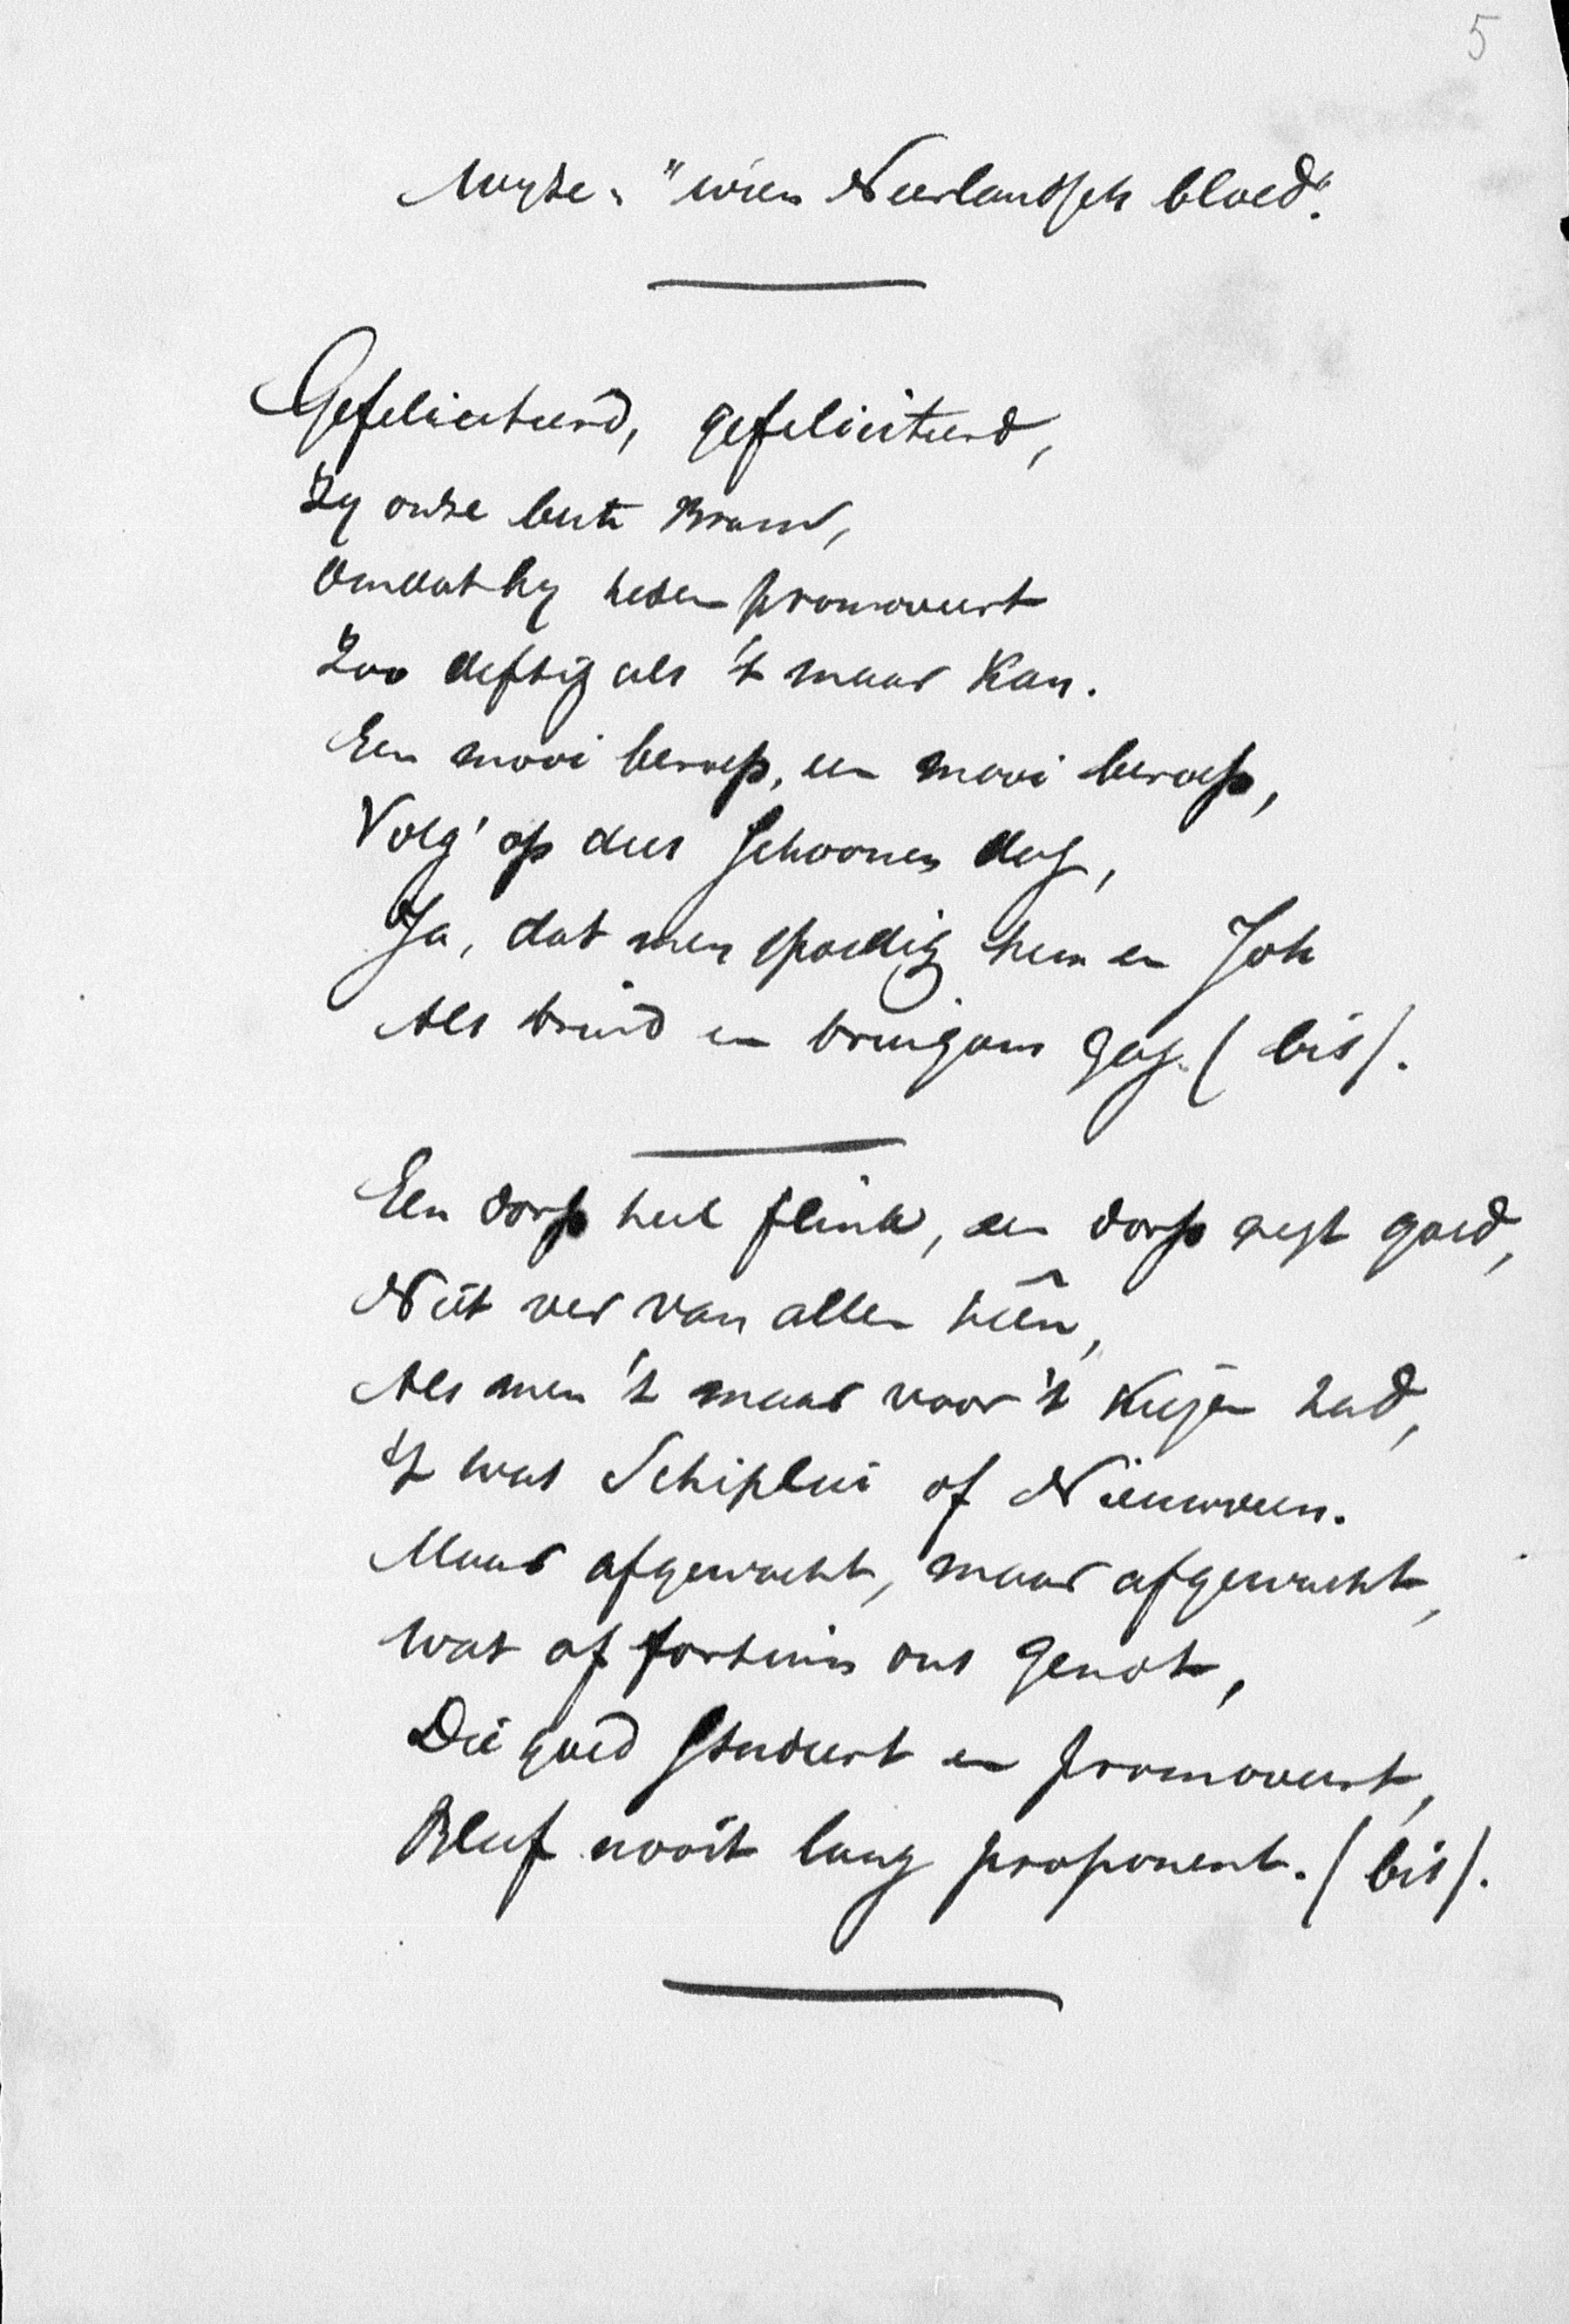 5
Wyze: "Wien Neerlandsch bloed".
Gefeliciteerd, gefeliciteerd,
Zy onze beste Bram,
Omdat hy heden promoveert
Zoo deftig als 't maar kan.
Een mooi beroep, een mooi beroep,
Volg' op dees schoonen dag,
Ja, dat men spoedig hem en Joh
Als bruid en bruigom zag. (bis).
Een dorp heel flink, een dorp regt goed,
Niet ver van allen heên,
Als men 't maar voor 't kiezen had,
't Was Schiplui of Nieuwveen.
Maar afgewacht, maar afgewacht,
Wat of fortuin ons zendt,
Die goed studeert en promoveert,
Bleef nooit lang proponent. (bis).